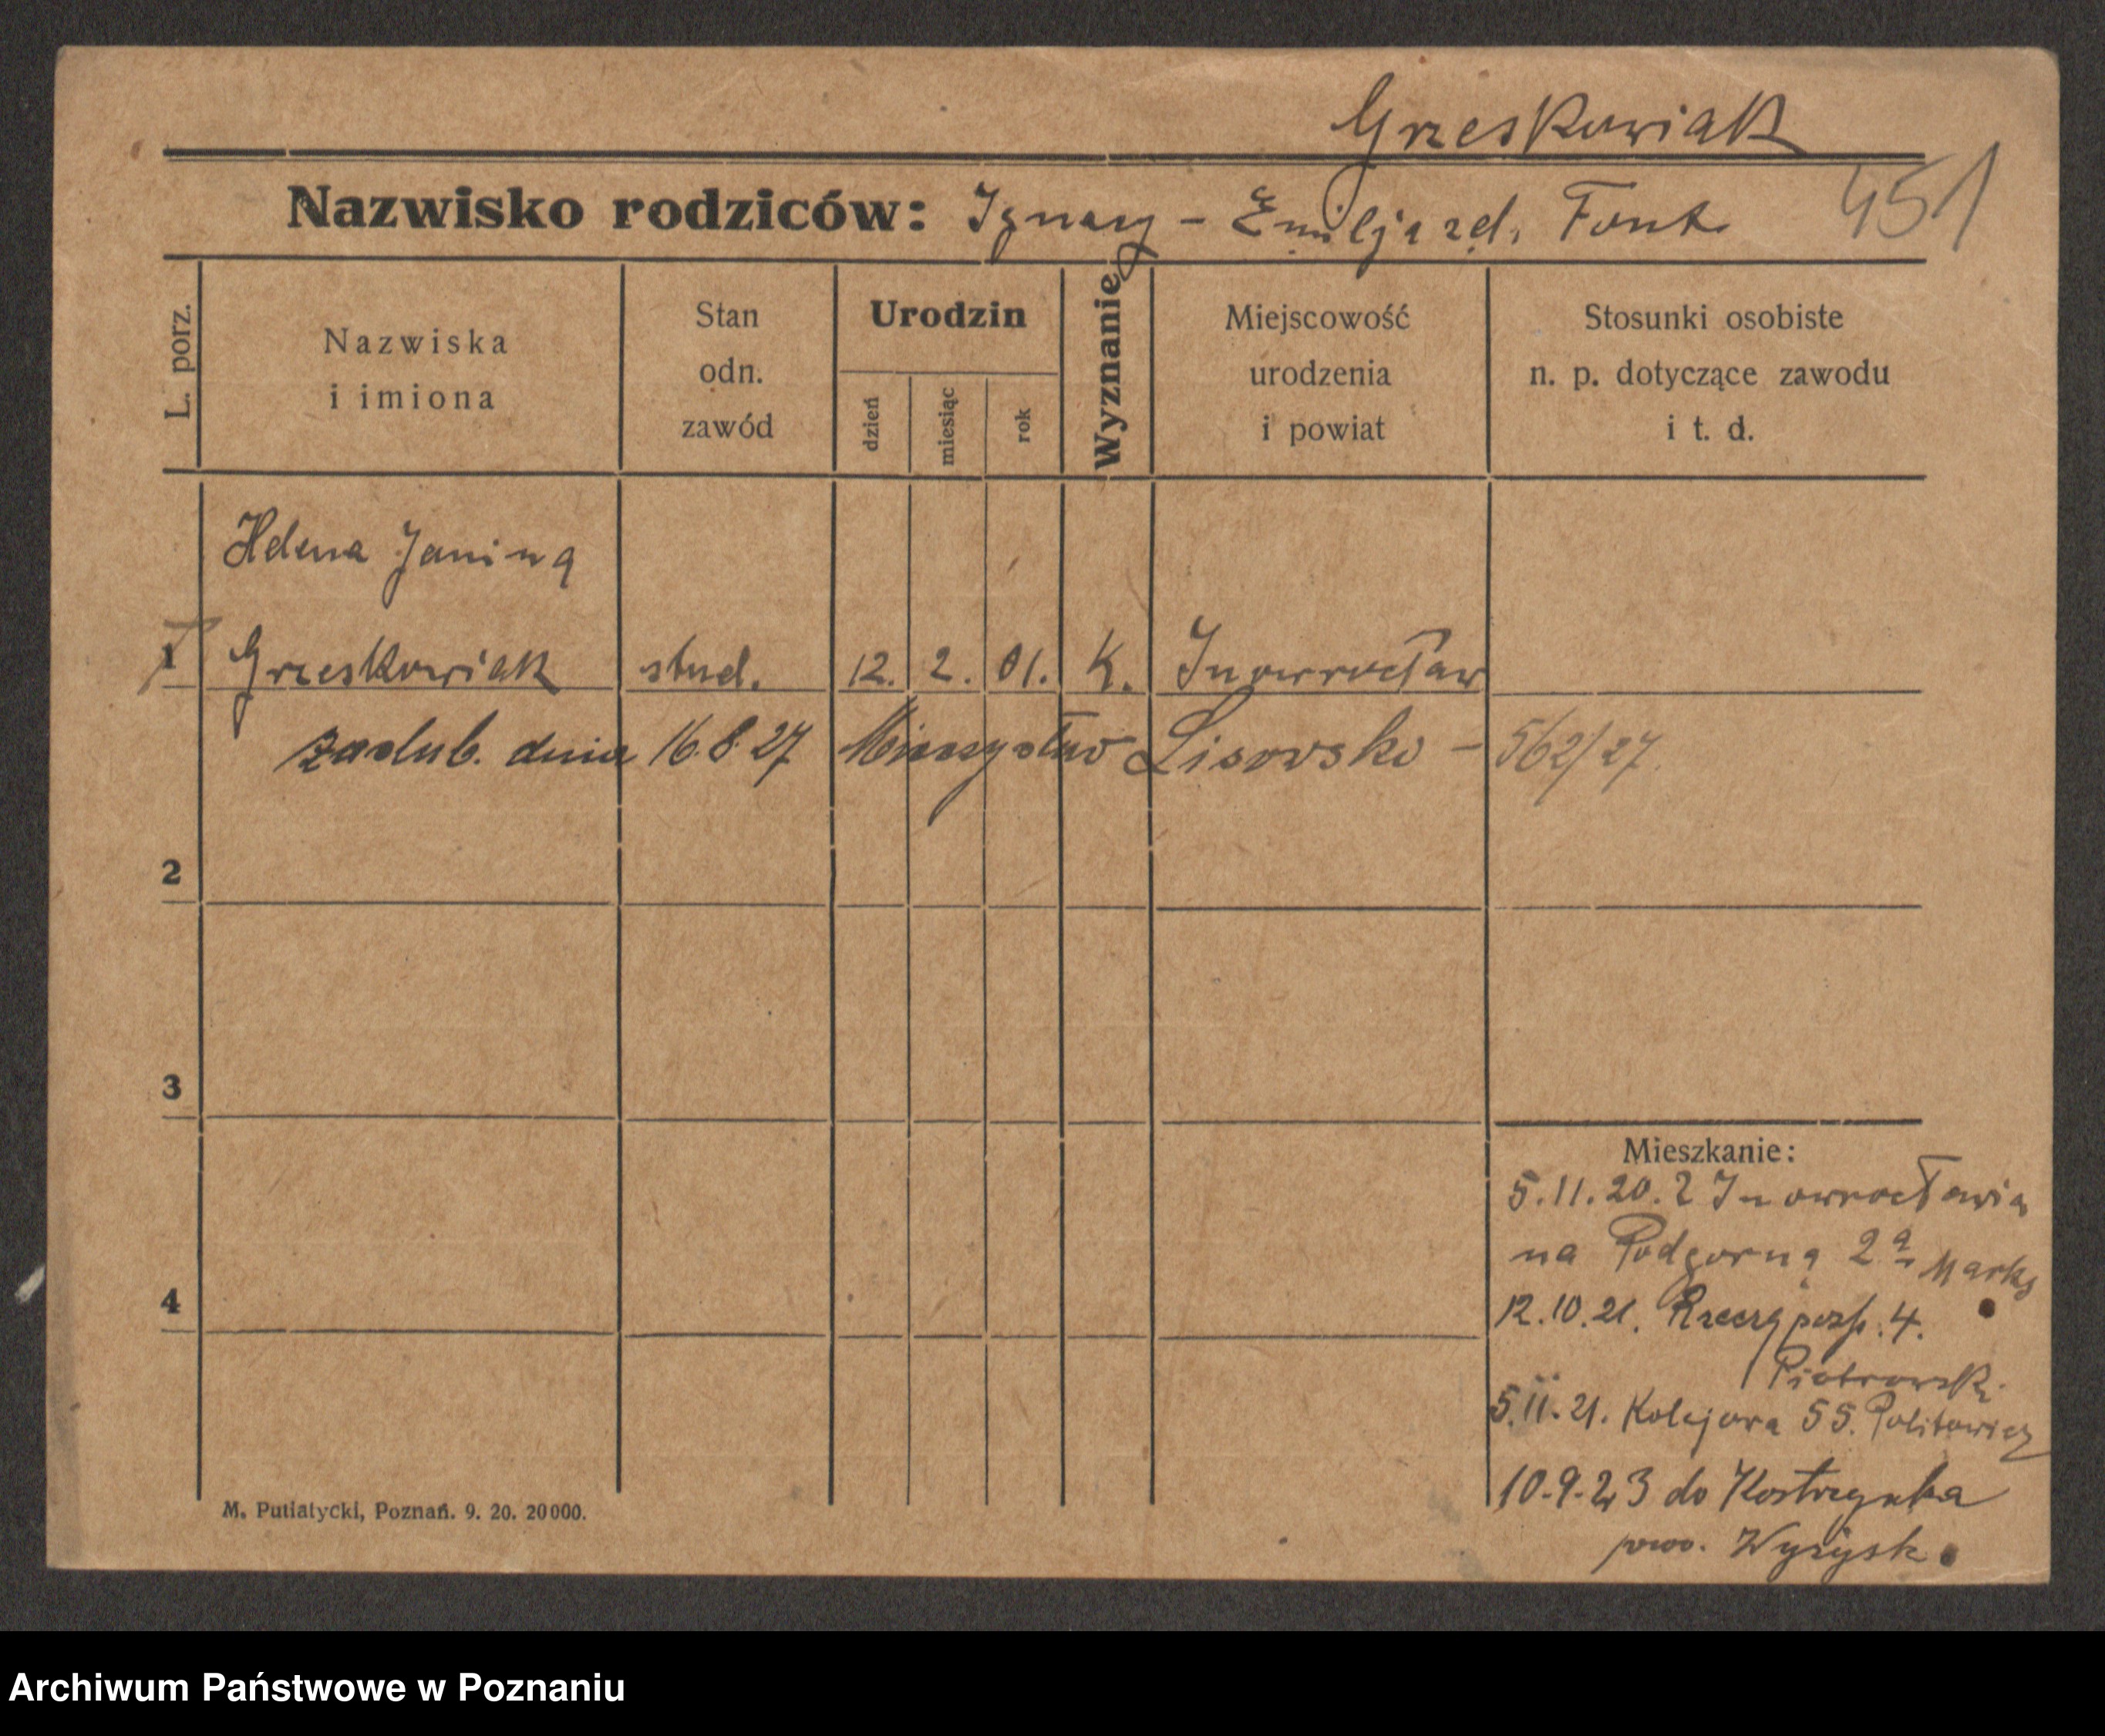 Grzeskowiak
Nazwisko rodziców: Ignacy - Emilja zd. Font
451
L. porz.
Nazwiska
i imiona
Stan
odn.
zawód
Urodzin
dzień
miesiąc
rok
Wyznanie
Miejscowość
urodzenia
i powiat
Stosunki osobiste
n. p. dotyczące zawodu
i t. d.
Helena Janina
1 Grzeskowiak stud. 12. 2. 01. K. Inowrocław
zaslub. dnia 16.8.27 Mieczysław Lisowsko - 562/27.
2
3
4
Mieszkanie:
5.11.20. z Inowrocławia
na Podgorną 2a
12.10.21. Rzeczyposp. 4.
Piotrowski
5.11.21. Kolejowa 55. Politowicz
10.9.23 do Kostrzynka
pow. Wyrzysk
M. Putiatycki, Poznań. 9. 20. 20000.
Archiwum Państwowe w Poznaniu